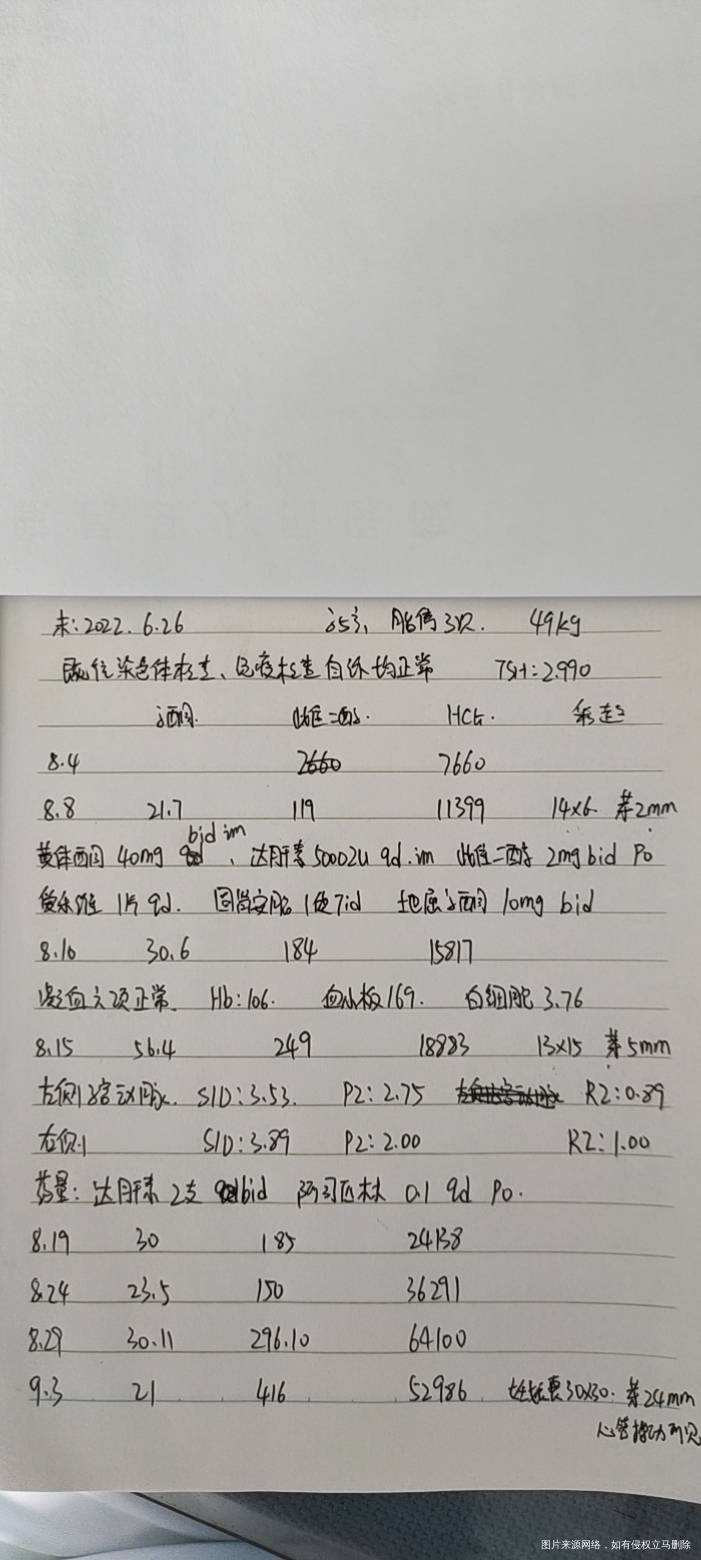 末:2022.6.26 35岁, 胎停3次. 49kg
既往染色体检查、免疫检查自诉均正常 TSH:2.990
孕酮. 雌二醇. HCG. 彩超
8.4 7660
8.8 21.7 119 11399 14×6 芽2mm
黄体酮 40mg bid im、达肝素5000Iu qd.im 雌二醇 2mg bid Po
爱乐维 1片 qd. 固肾安胎 1袋Tid 地屈孕酮 10mg bid
8.10 30.6 184 15817
凝血六项正常. Hb:106. 血小板169. 白细胞 3.76
8.15 56.4 249 18883 13×15 芽5mm
左侧子宫动脉. S/D:3.53. PI:2.75 RI:0.89
右侧 S/D:3.89 PI:2.00 RI:1.00
药量: 达肝素 2支 bid 阿司匹林 0.1 qd Po.
8.19 30 185 24138
8.24 23.5 150 36291
8.29 30.11 296.10 64100
9.3 21 416 52986 妊娠囊30×30. 芽24mm
心管搏动可见
图片来源网络，如有侵权立马删除